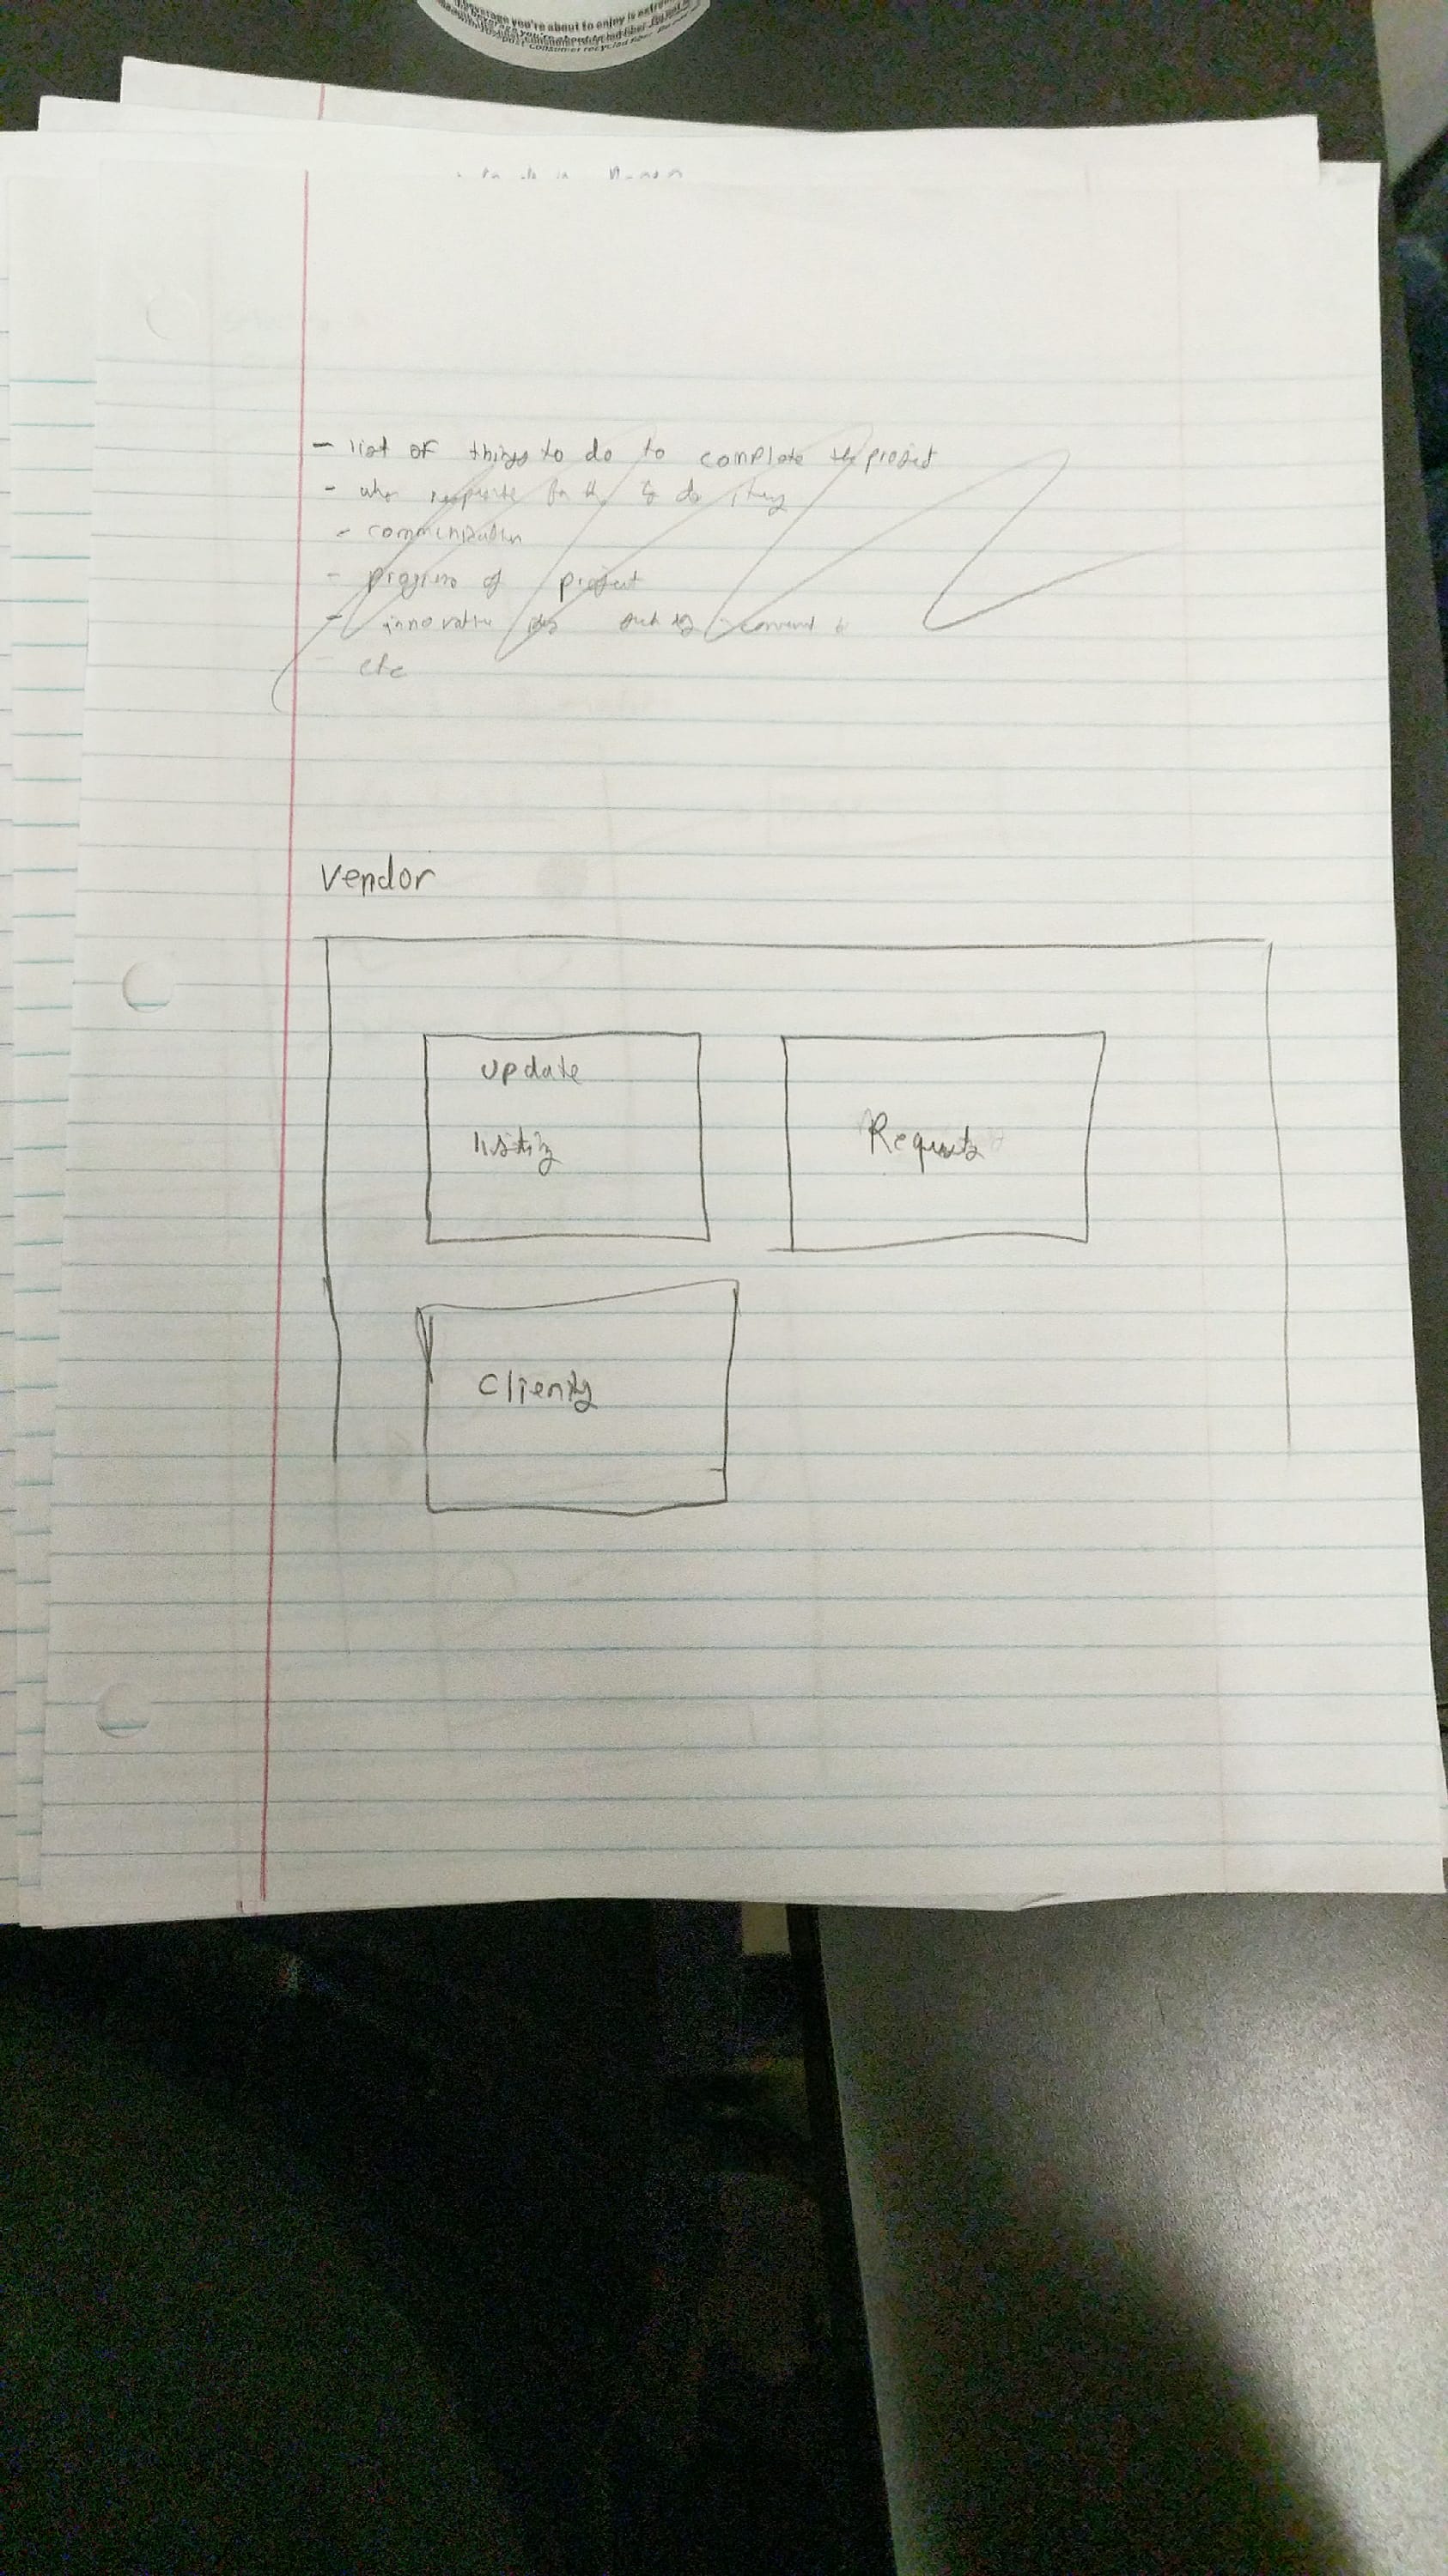 beverage you're about to enjoy is extrem
post-consumer recycled fiber.
- list of things to do to complete the project
- who for to do
- communication
- progress of project
- innovative
etc
Vendor
update
listing
Requests
Clients